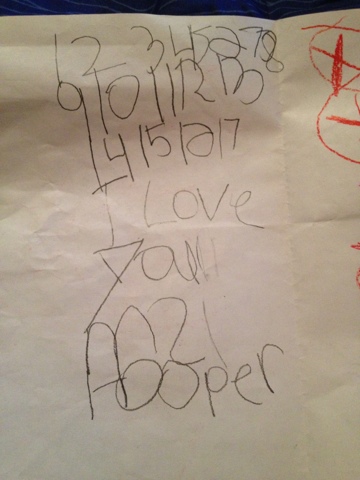 12 345678
9 10 11 12 13
14 15 16 17
I Love
you!!
Hooper